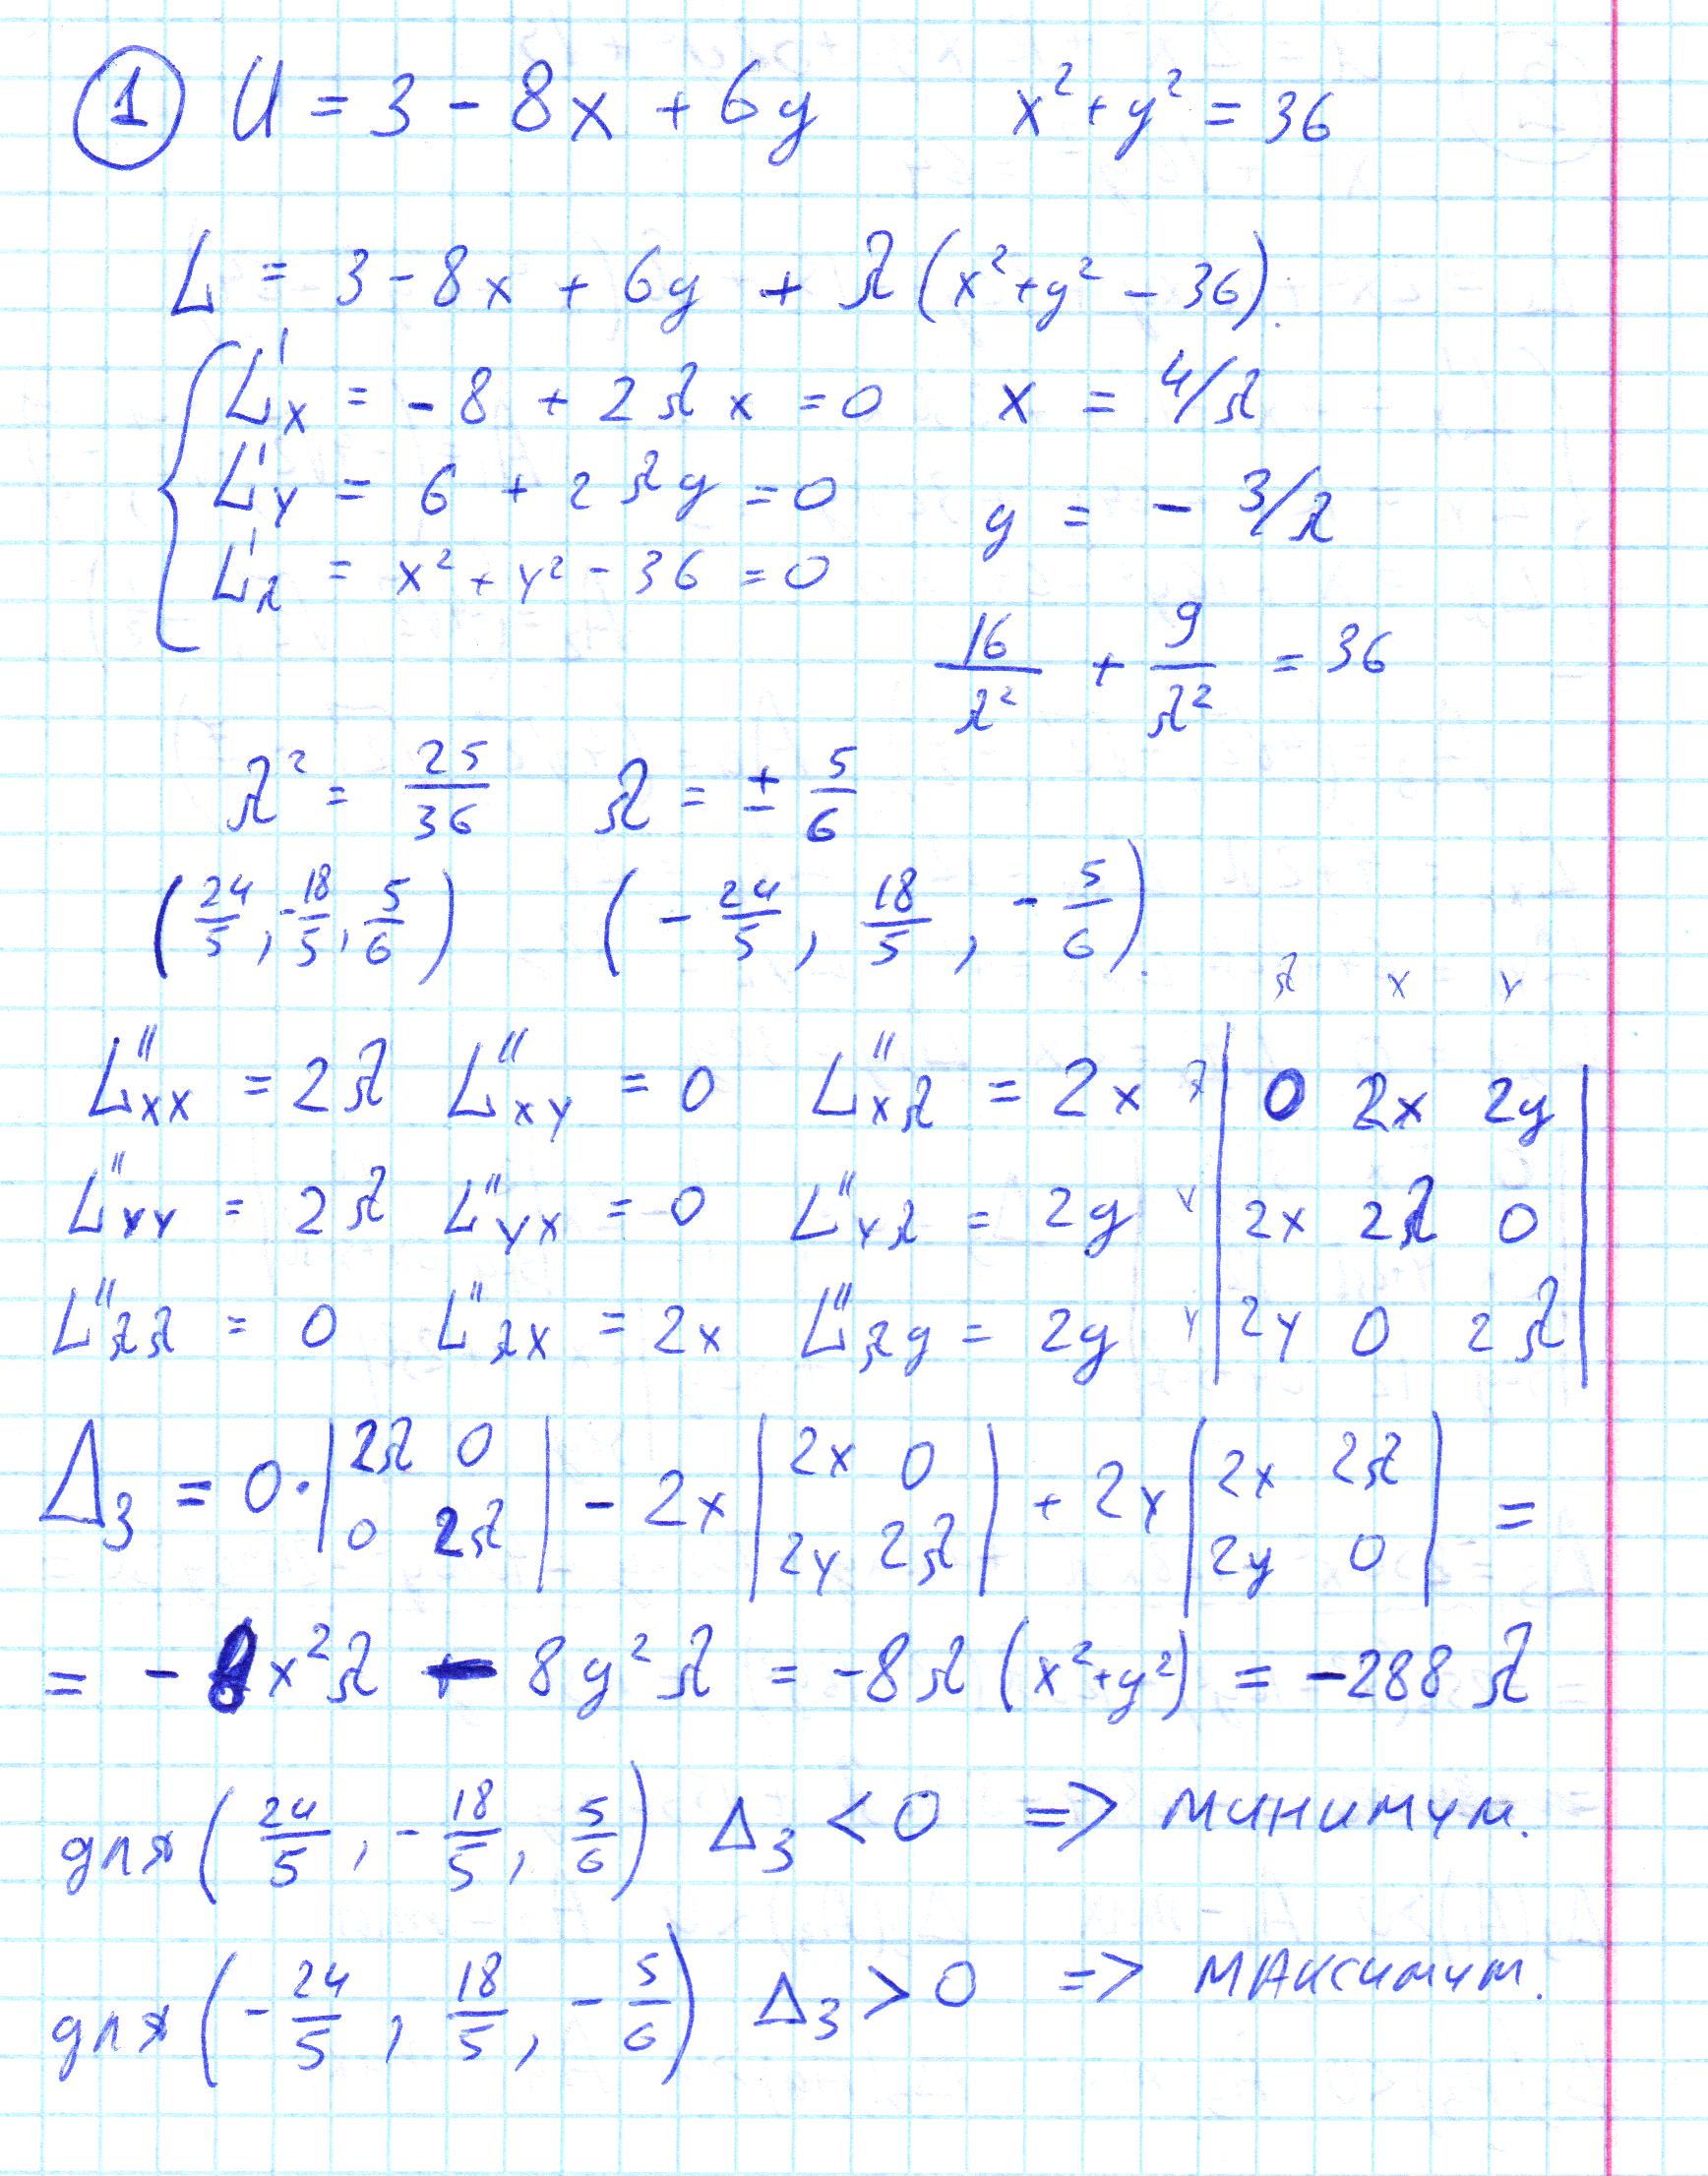 ① U = 3 - 8x + 6y    x² + y² = 36
L = 3 - 8x + 6y + λ(x² + y² - 36).
L'x = -8 + 2λx = 0    x = 4/λ
L'y = 6 + 2λy = 0    y = - 3/λ
L'λ = x² + y² - 36 = 0
16/λ² + 9/λ² = 36
λ² = 25/36    λ = ± 5/6
(24/5, -18/5, 5/6)    (- 24/5, 18/5, - 5/6).
λ x y
L''xx = 2λ    L''xy = 0    L''xλ = 2x    λ | 0 2x 2y |
L''yy = 2λ    L''yx = 0    L''yλ = 2y    | 2x 2λ 0 |
L''λλ = 0    L''λx = 2x    L''λy = 2y    y | 2y 0 2λ |
Δ₃ = 0·|2λ 0; 0 2λ| - 2x|2x 0; 2y 2λ| + 2y|2x 2λ; 2y 0| =
= - 8x²λ - 8y²λ = -8λ(x²+y²) = -288λ
для (24/5, - 18/5, 5/6) Δ₃ < 0 => минимум.
для (- 24/5, 18/5, - 5/6) Δ₃ > 0 => максимум.